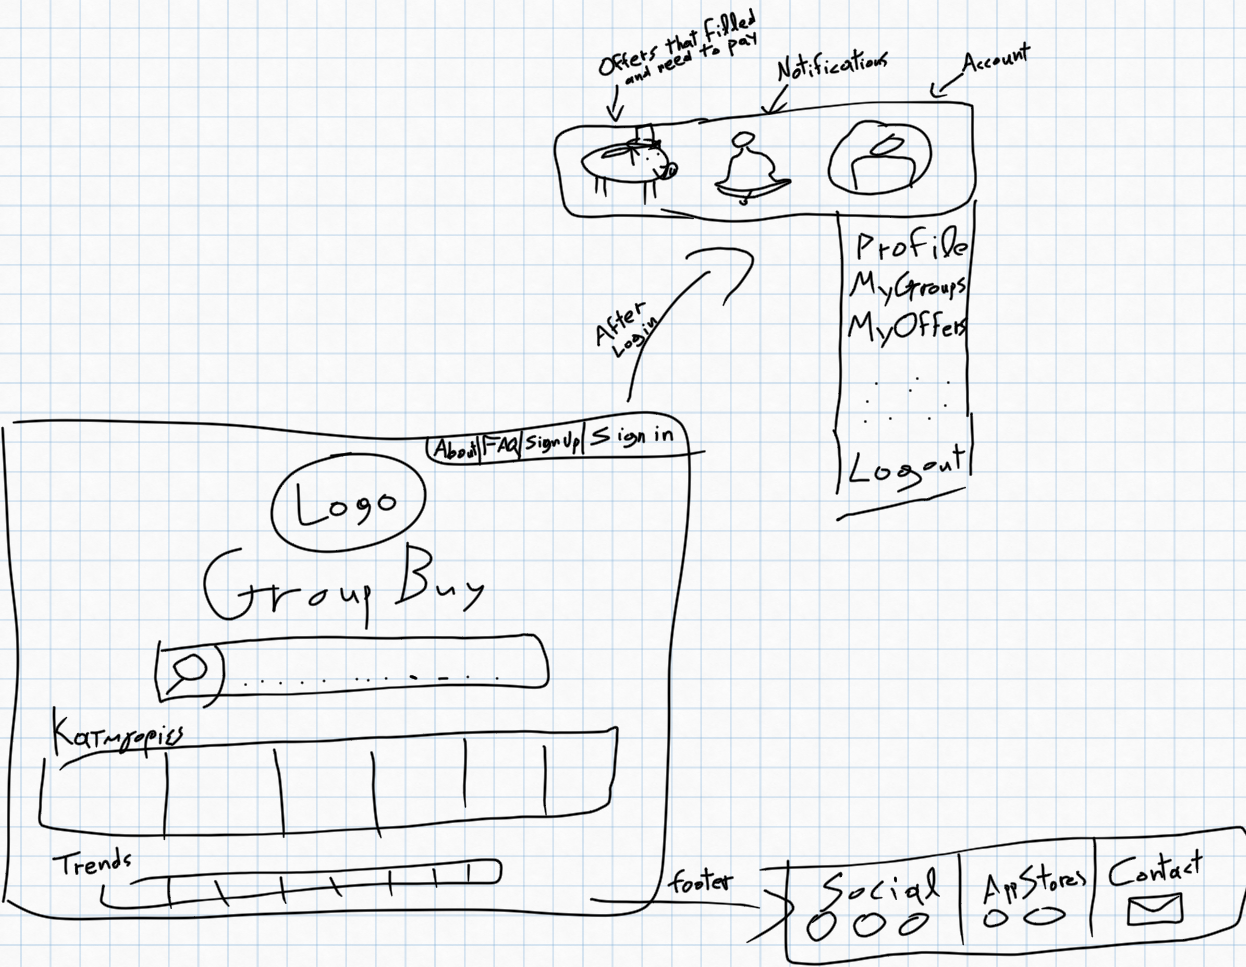 Offers that filled
and need to pay
Notifications
Account
Profile
MyGroups
MyOffers
Logout
After
Login
About FAQ SignUp Sign in
Logo
Group Buy
Κατηγορίες
Trends
footer
Social AppStores Contact